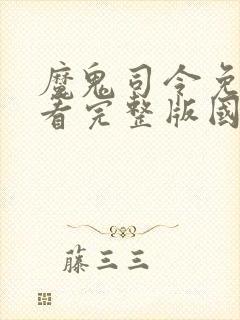 魔鬼司令免
看完整版國
藤三三